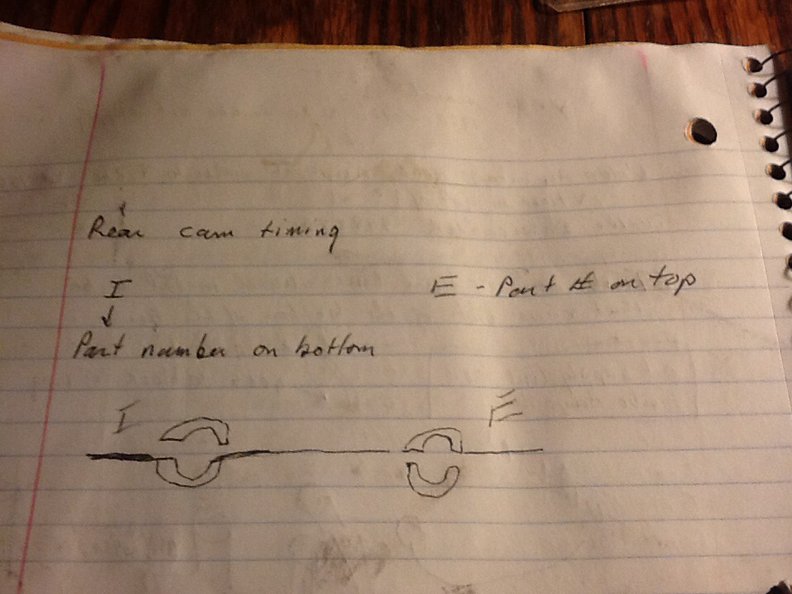 Rear cam timing
I E - Part # on top
Part number on bottom
I E